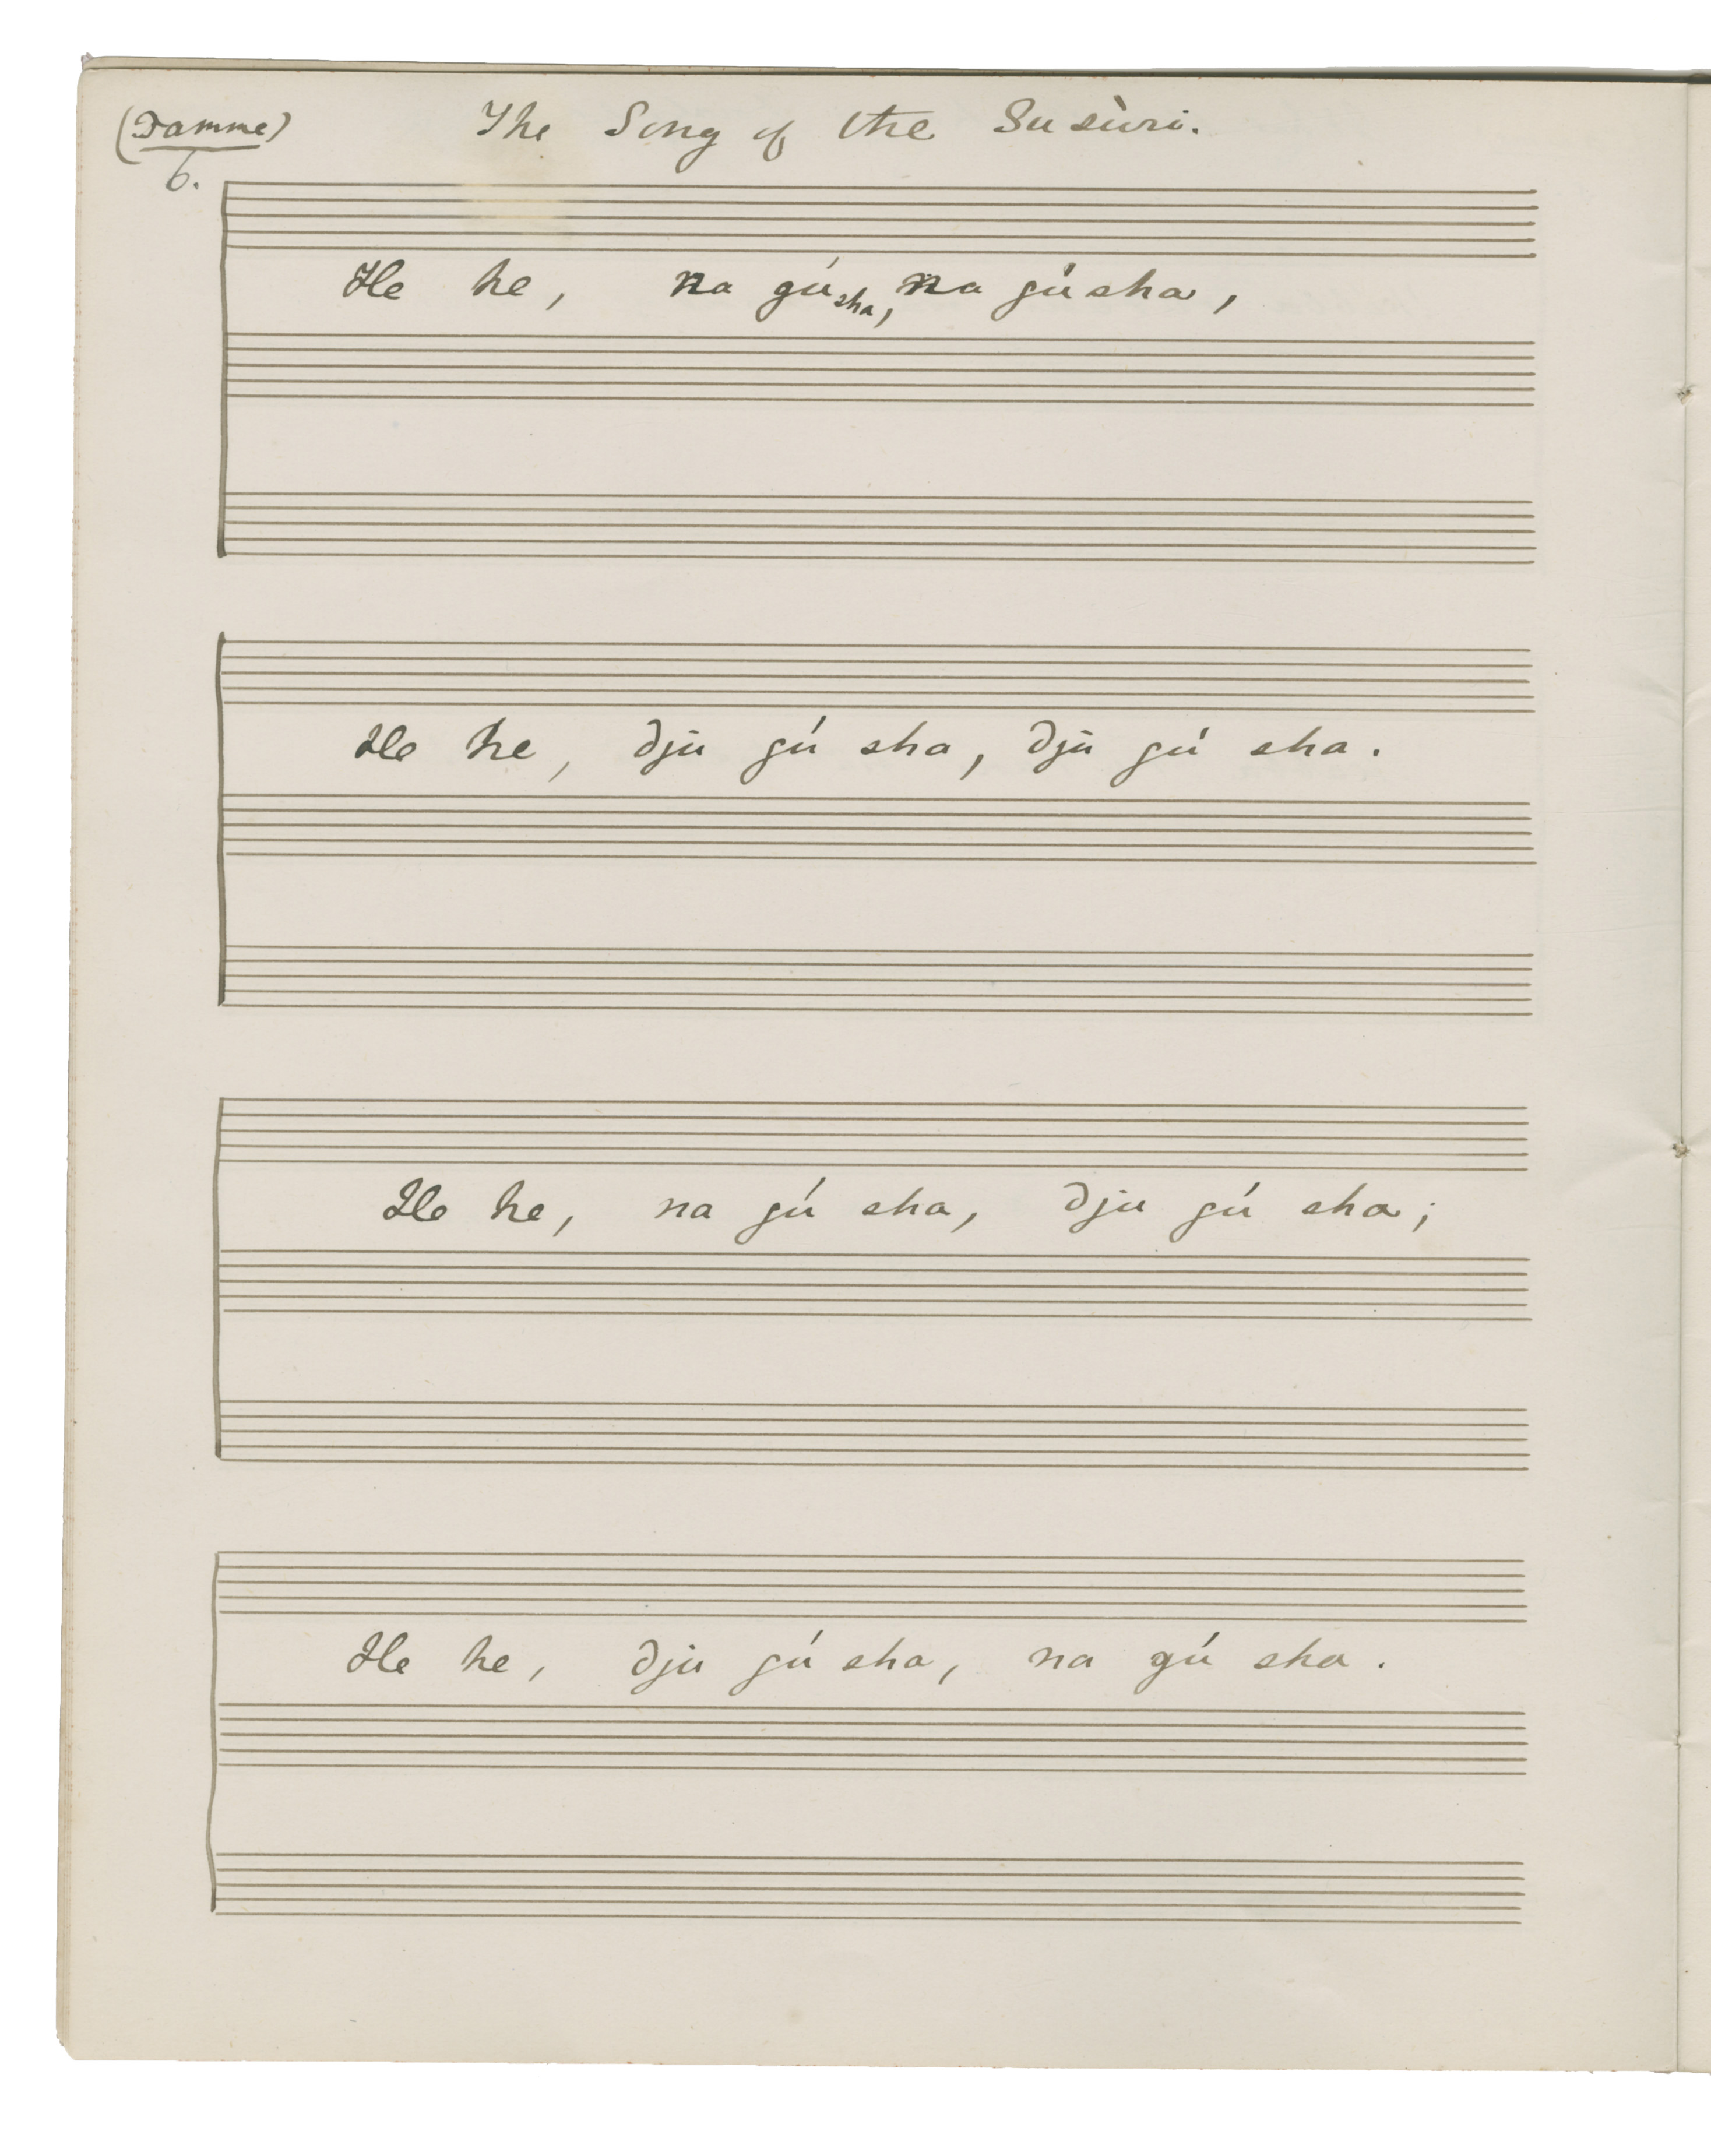 (Damme) The Song of the Susùri.
6.
He he, na gú sha, na gúsha,
He he, Dju gú sha, Dju gú sha.
He he, na gú sha, Dju gú sha;
He he, Dju gú sha, na gú sha.